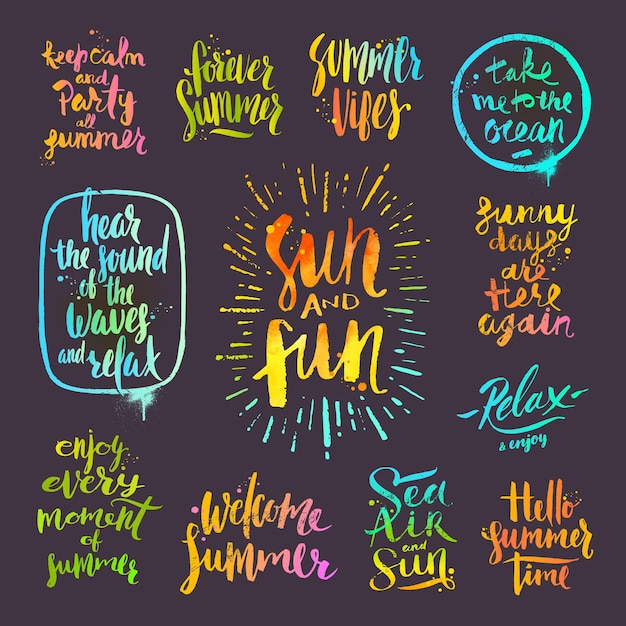 keep calm
and
Party
all
summer
forever
Summer
Summer
Vibes
take
me to the
ocean
hear
the sound
of the
waves
and relax
Sun
AND
fun
sunny
days
are
Here
again
Relax
& enjoy
enjoy
every
moment
of
summer
Welcome
Summer
Sea
AiR
and
Sun
Hello
Summer
time